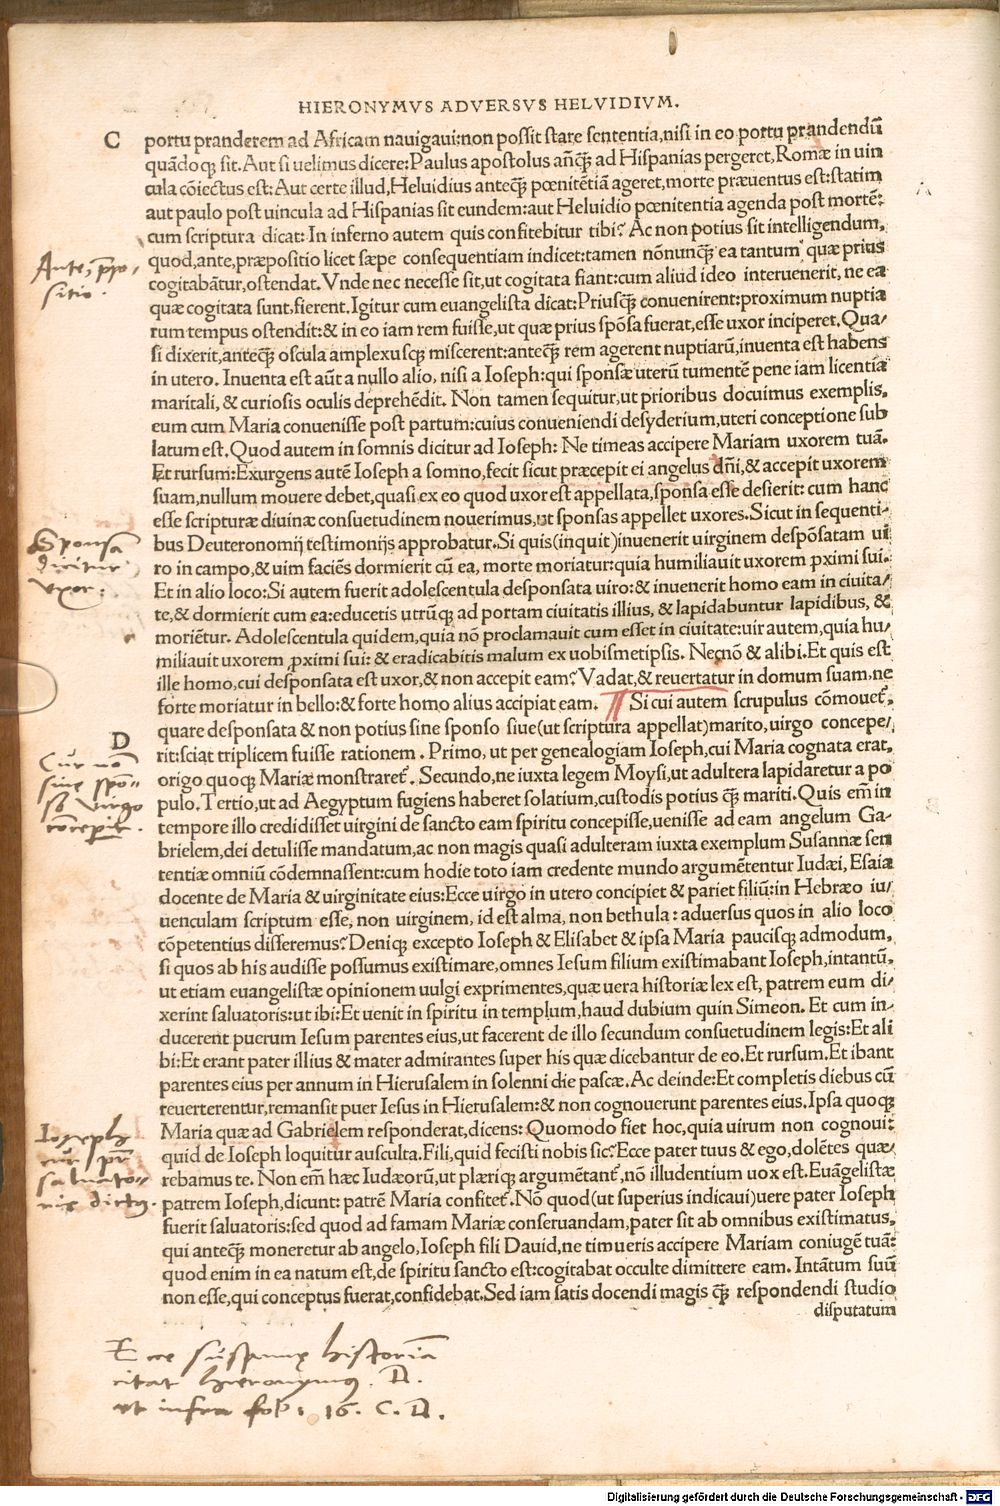 HIERONYMVS ADVERSVS HELVIDIVM.
C
portu pranderem ad Africam nauigaui:non possit stare sententia,nisi in eo portu prandendū
quādoqꝫ sit. Aut si uelimus dicere:Paulus apostolus añqꝫ̄ ad Hispanias pergeret,Romæ in uin
cula cōiectus est:Aut certe illud,Heluidius anteqꝫ̄ pœnitētiā ageret,morte præuentus est:statim
aut paulo post uincula ad Hispanias sit eundem:aut Heluidio pœnitentia agenda post mortē:
cum scriptura dicat: In inferno autem quis confitebitur tibi? Ac non potius sit intelligendum,
quod,ante,præpositio licet sæpe consequentiam indicet:tamen nōnunqꝫ̄ ea tantum quæ prius
cogitabātur,ostendat. Vnde nec necesse sit,ut cogitata fiant:cum aliud ideo interuenerit, ne ea
quæ cogitata sunt,fierent. Igitur cum euangelista dicat:Priusqꝫ̄ conuenirent:proximum nuptia
rum tempus ostendit:& in eo iam rem fuisse,ut quæ prius spōsa fuerat,esse uxor inciperet. Qua/
si dixerit,anteqꝫ̄ oscula amplexusqꝫ miscerent:anteqꝫ̄ rem agerent nuptiarū,inuenta est habens
in utero. Inuenta est aūt a nullo alio, nisi a Ioseph:qui sponsæ uterū tumentē pene iam licentia
maritali, & curiosis oculis deprehēdit. Non tamen sequitur,ut prioribus docuimus exemplis,
eum cum Maria conuenisse post partum:cuius conueniendi desyderium,uteri conceptione sub
latum est. Quod autem in somnis dicitur ad Ioseph: Ne timeas accipere Mariam uxorem tuā.
Et rursum:Exurgens autē Ioseph a somno,fecit sicut præcepit ei angelus dñi,& accepit uxorem
suam,nullum mouere debet,quasi ex eo quod uxor est appellata,sponsa esse desierit: cum hanc
esse scripturæ diuinæ consuetudinem nouerimus,ut sponsas appellet uxores. Sicut in sequenti-
bus Deuteronomij testimonijs approbatur. Si quis(inquit)inuenerit uirginem despōsatam ui
ro in campo,& uim faciēs dormierit cū ea, morte moriatur:quia humiliauit uxorem ꝓximi sui.
Et in alio loco:Si autem fuerit adolescentula desponsata uiro:& inuenerit homo eam in ciuita/
te,& dormierit cum ea:educetis utrūqꝫ ad portam ciuitatis illius, & lapidabuntur lapidibus, &
moriētur. Adolescentula quidem,quia nō proclamauit cum esset in ciuitate:uir autem,quia hu/
miliauit uxorem ꝓximi sui: & eradicabitis malum ex uobismetipsis. Necnō & alibi.Et quis est
ille homo,cui desponsata est uxor,& non accepit eam? Vadat,& reuertatur in domum suam,ne
forte moriatur in bello:& forte homo alius accipiat eam. Si cui autem scrupulus cōmouet̄,
quare desponsata & non potius sine sponso siue(ut scriptura appellat)marito,uirgo concepe/
D
rit:sciat triplicem fuisse rationem. Primo, ut per genealogiam Ioseph,cui Maria cognata erat,
origo quoqꝫ Mariæ monstraret̄. Secundo,ne iuxta legem Moysi,ut adultera lapidaretur a po
pulo. Tertio,ut ad Aegyptum fugiens haberet solatium,custodis potius qꝫ̄ mariti. Quis em̄ in
tempore illo credidisset uirgini de sancto eam spiritu concepisse,uenisse ad eam angelum Ga-
brielem,dei detulisse mandatum,ac non magis quasi adulteram iuxta exemplum Susannæ sen
tentiæ omniū cōdemnassent:cum hodie toto iam credente mundo argumētentur Iudæi, Esaia
docente de Maria & uirginitate eius:Ecce uirgo in utero concipiet & pariet filiū:in Hebræo iu/
uenculam scriptum esse, non uirginem, id est alma, non bethula: aduersus quos in alio loco
cōpetentius disseremus? Deniqꝫ excepto Ioseph & Elisabet & ipsa Maria paucisqꝫ admodum,
si quos ab his audisse possumus existimare,omnes Iesum filium existimabant Ioseph,intantū,
ut etiam euangelistæ opinionem uulgi exprimentes,quæ uera historiæ lex est, patrem eum di-
xerint saluatoris:ut ibi:Et uenit in spiritu in templum,haud dubium quin Simeon. Et cum in-
ducerent puerum Iesum parentes eius,ut facerent de illo secundum consuetudinem legis:Et ali
bi:Et erant pater illius & mater admirantes super his quæ dicebantur de eo.Et rursum.Et ibant
parentes eius per annum in Hierusalem in solenni die pascæ. Ac deinde:Et completis diebus cū
reuerterentur,remansit puer Iesus in Hierusalem:& non cognouerunt parentes eius. Ipsa quoqꝫ
Maria quæ ad Gabrielem responderat,dicens: Quomodo fiet hoc,quia uirum non cognoui:
quid de Ioseph loquitur ausculta. Fili,quid fecisti nobis sic? Ecce pater tuus & ego,dolētes quæ/
rebamus te. Non em̄ hæc Iudæorū,ut plæriqꝫ argumētant̄,nō illudentium uox est. Euāgelistæ
patrem Ioseph,dicunt: patrē Maria confitet̄. Nō quod(ut superius indicaui)uere pater Ioseph
fuerit saluatoris:sed quod ad famam Mariæ conseruandam,pater sit ab omnibus existimatus,
qui anteqꝫ̄ moneretur ab angelo,Ioseph fili Dauid,ne timueris accipere Mariam coniugē tuā:
quod enim in ea natum est,de spiritu sancto est:cogitabat occulte dimittere eam. Intātum suū
non esse,qui conceptus fuerat,confidebat. Sed iam satis docendi magis qꝫ̄ respondendi studio
disputatum
Ante, p̄po-
sitio.
Sponsa
dicitur
vxor.
Cur nō
sine spō-
so virgo
cōcepit.
Ioseph
cur pr̄
saluato-
ris dictꝰ.
Ecce susannę historia
citat hieronymꝰ. D.
vt infra fol. 16. C. D.
Digitalisierung gefördert durch die Deutsche Forschungsgemeinschaft - DFG